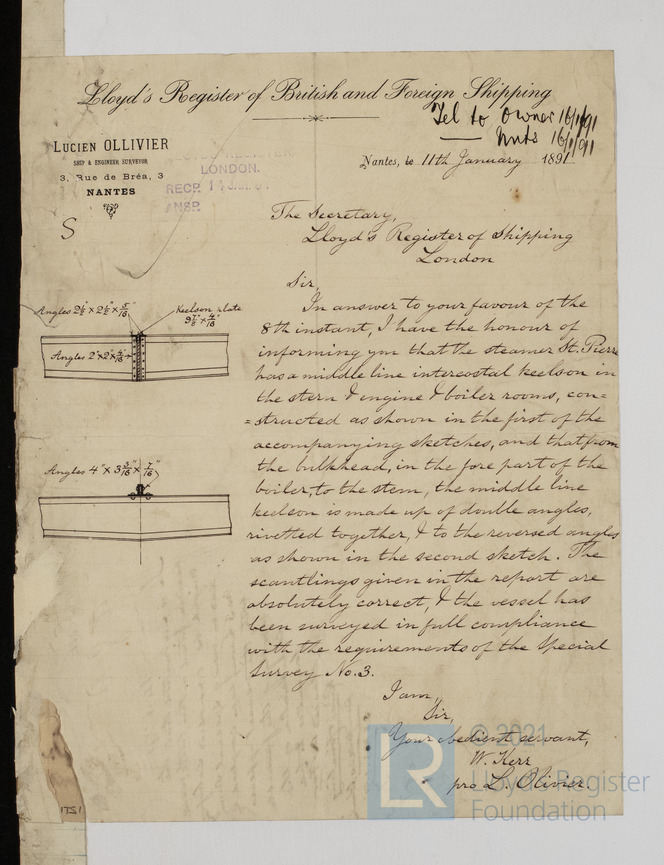 Lloyd's Register of British and Foreign Shipping
Tel to Owner 16/1/91
16/1/91
LUCIEN OLLIVIER
SHIP & ENGINEER SURVEYOR
3, Rue de Bréa, 3
NANTES
LONDON.
RECD.
ANSD.
Nantes, le 11th January 1891
S
The Secretary,
Lloyd's Register of Shipping
London
Sir,
In answer to your favour of the
8th instant, I have the honour of
informing you that the steamer St. Pierre
has a middle line intercostal keelson in
the stern & engine & boiler rooms, con=
=structed as shown in the first of the
accompanying sketches, and that from
the bulkhead, in the fore part of the
boiler, to the stem, the middle line
keelson is made up of double angles,
rivetted together, & to the reversed angles
as shown in the second sketch. The
scantlings given in the report are
absolutely correct, & the vessel has
been surveyed in full compliance
with the requirements of the Special
Survey No. 3.
I am,
Sir,
Your obedient servant,
W. Kerr
pro L. Olivier.
Keelson plate
Angles 2" x 2" x
Angles 4" x
1751
© 2021
LR
Lloyd's Register
Foundation